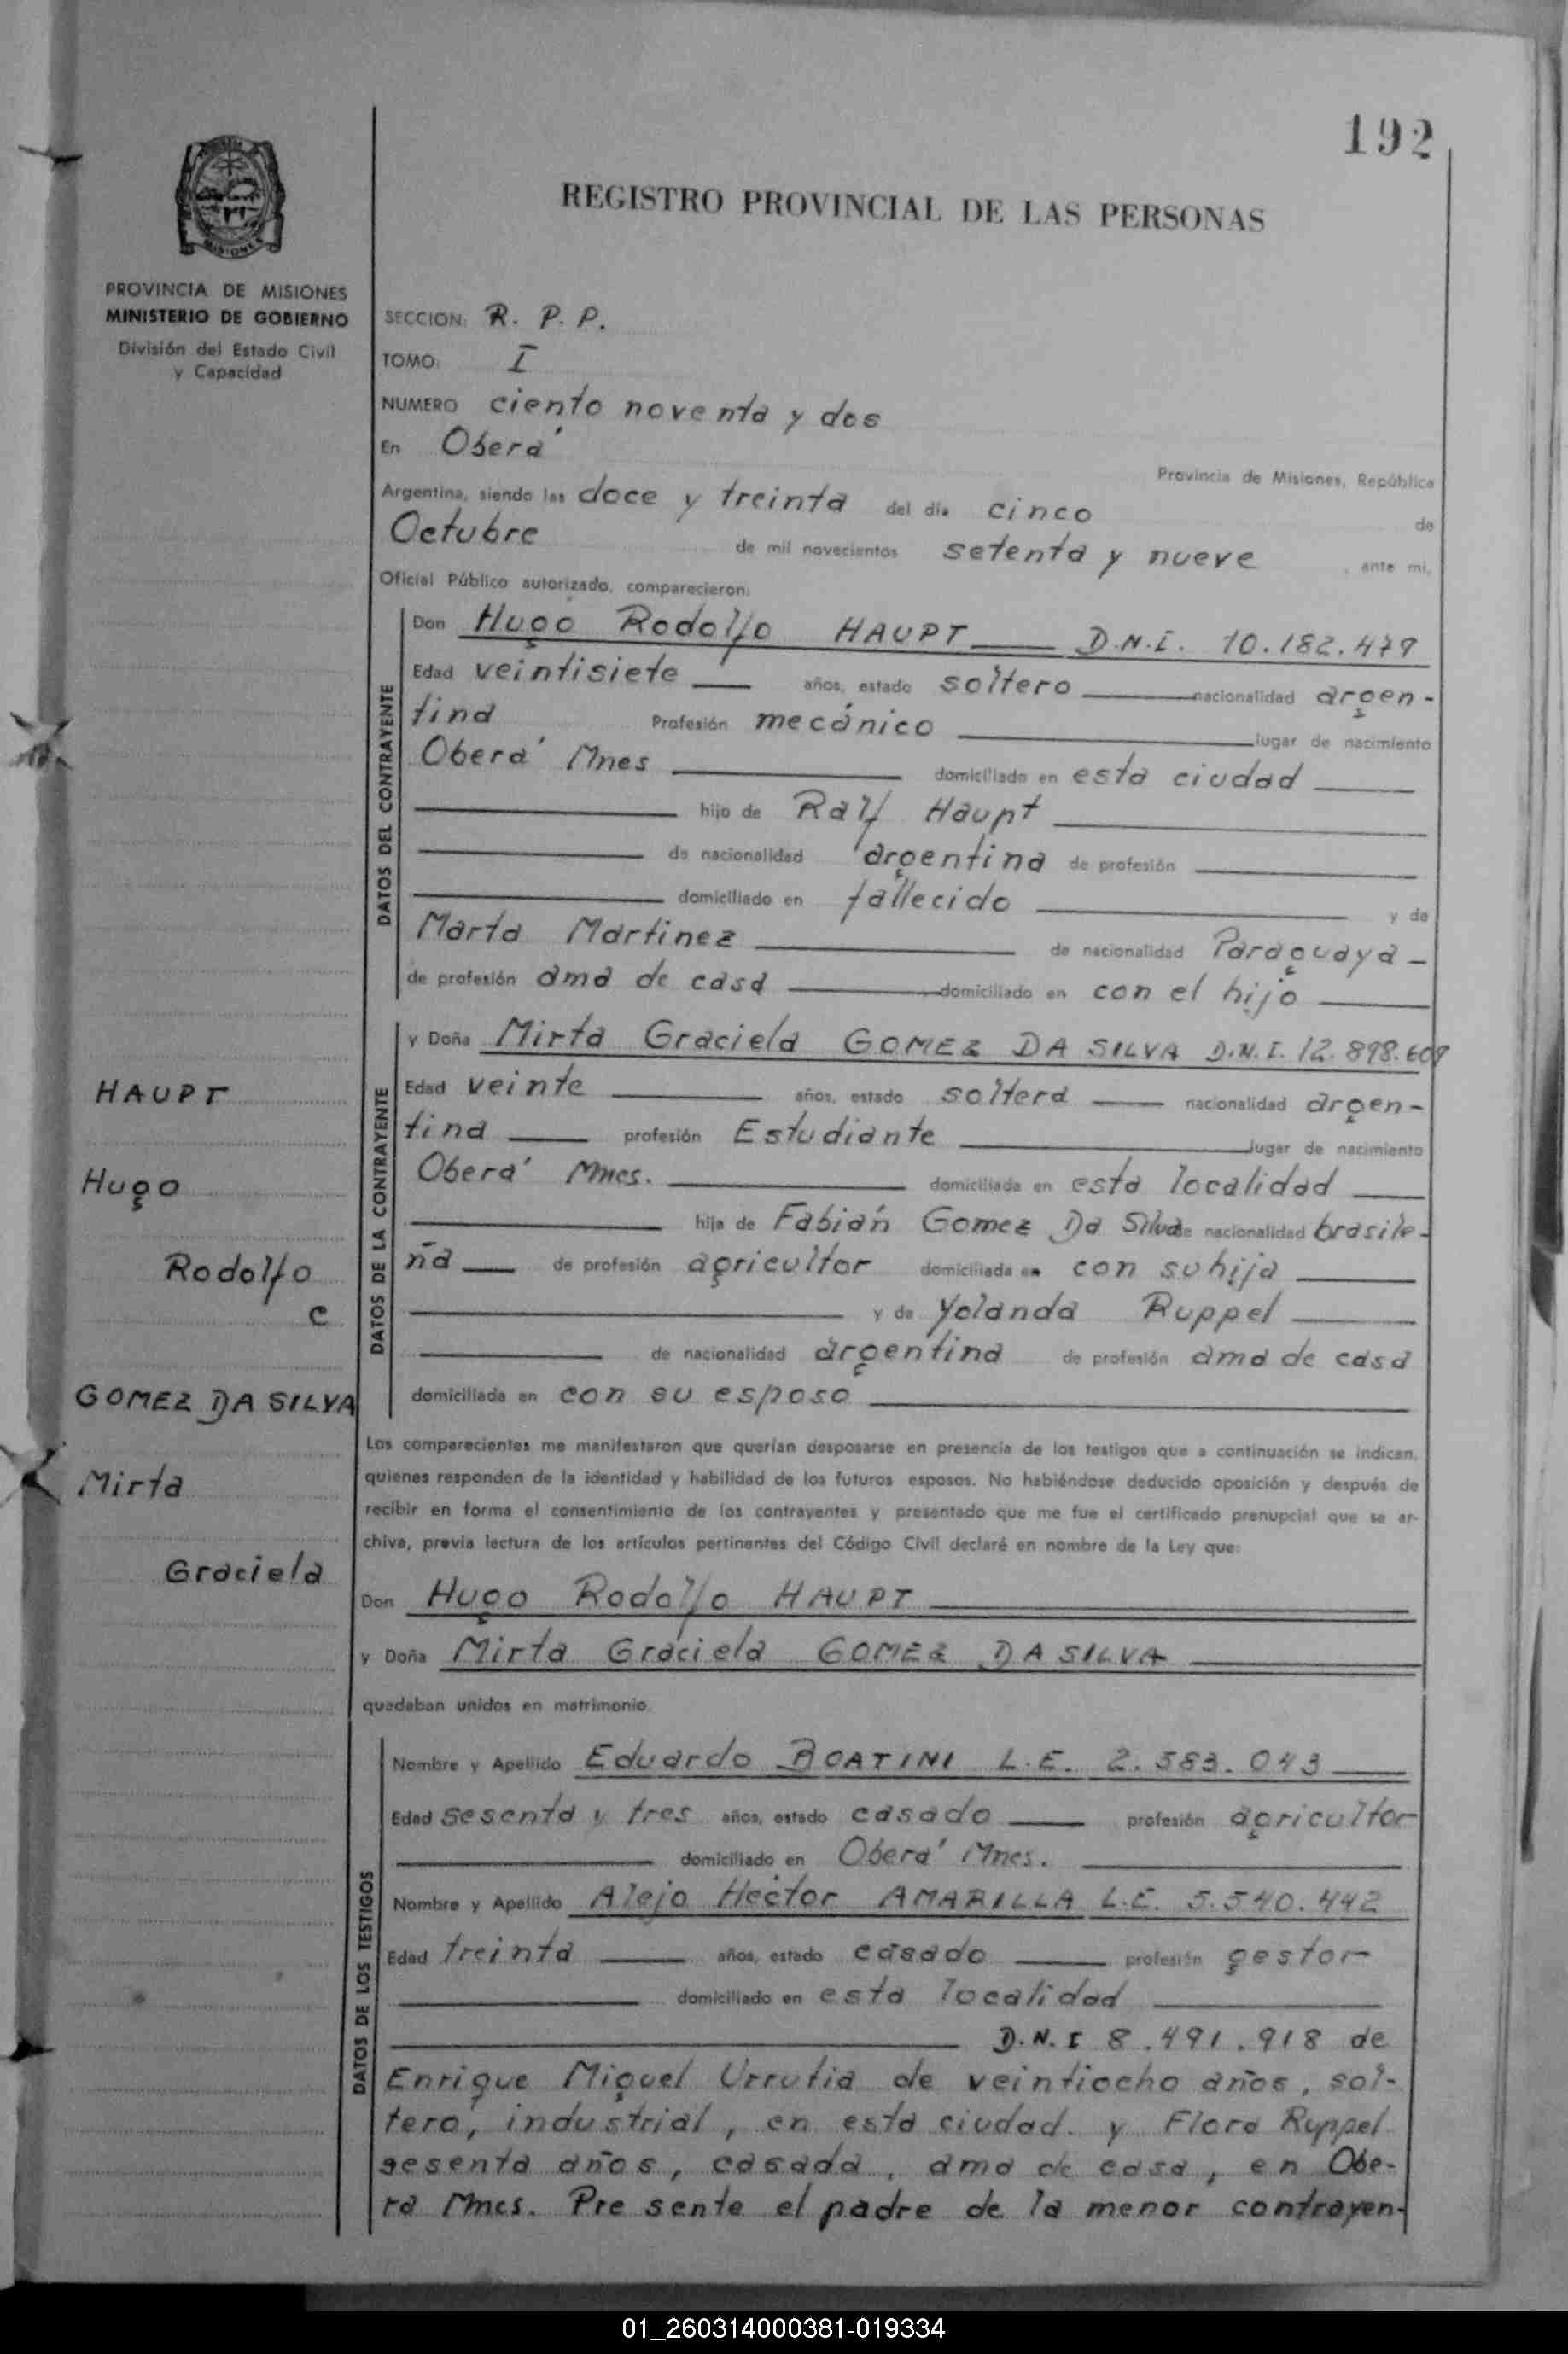 192
REGISTRO PROVINCIAL DE LAS PERSONAS
MISIONES
PROVINCIA DE MISIONES
MINISTERIO DE GOBIERNO
División del Estado Civil
y Capacidad
SECCION: R. P. P.
TOMO: I
NUMERO ciento noventa y dos
En Oberá
Provincia de Misiones, República
Argentina, siendo las doce y treinta del día cinco de
Octubre de mil novecientos setenta y nueve, ante mí,
Oficial Público autorizado, comparecieron:
DATOS DEL CONTRAYENTE
Don Hugo Rodolfo HAUPT D.N.I. 10.182.479
Edad veintisiete años, estado soltero nacionalidad argen-
tina Profesión mecánico lugar de nacimiento
Oberá Mnes domiciliado en esta ciudad
hijo de Ralf Haupt
de nacionalidad argentina de profesión
domiciliado en fallecido y de
Marta Martinez de nacionalidad Paraguaya
de profesión ama de casa domiciliado en con el hijo
DATOS DE LA CONTRAYENTE
y Doña Mirta Graciela GOMEZ DA SILVA D.N.I. 12.898.609
Edad veinte años, estado soltera nacionalidad argen-
tina profesión Estudiante lugar de nacimiento
Oberá Mnes. domiciliada en esta localidad
hija de Fabián Gomez Da Silva de nacionalidad brasile-
ña de profesión agricultor domiciliada en con su hija
y de Yolanda Ruppel
de nacionalidad argentina de profesión ama de casa
domiciliada en con su esposo
HAUPT
Hugo
Rodolfo
c
GOMEZ DA SILVA
Mirta
Graciela
Los comparecientes me manifestaron que querían desposarse en presencia de los testigos que a continuación se indican,
quienes responden de la identidad y habilidad de los futuros esposos. No habiéndose deducido oposición y después de
recibir en forma el consentimiento de los contrayentes y presentado que me fue el certificado prenupcial que se ar-
chiva, previa lectura de los artículos pertinentes del Código Civil declaré en nombre de la Ley que:
Don Hugo Rodolfo HAUPT
y Doña Mirta Graciela GOMEZ DA SILVA
quedaban unidos en matrimonio.
DATOS DE LOS TESTIGOS
Nombre y Apellido Eduardo BOATINI L.E. 2.583.043
Edad sesenta y tres años, estado casado profesión agricultor
domiciliado en Oberá Mnes.
Nombre y Apellido Alejo Hector AMARILLA L.E. 5.540.442
Edad treinta años, estado casado profesión gestor
domiciliado en esta localidad
D.N.I 8.491.918 de
Enrique Miguel Urrutia de veintiocho años, sol-
tero, industrial, en esta ciudad. y Flora Ruppel
sesenta años, casada, ama de casa, en Obe-
ra Mnes. Presente el padre de la menor contrayen-
01_260314000381-019334